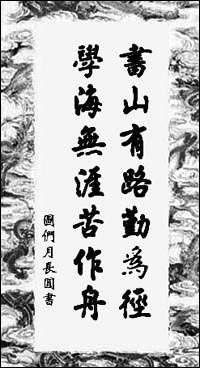 書山有路勤爲徑
學海無涯苦作舟
團們月長圓書